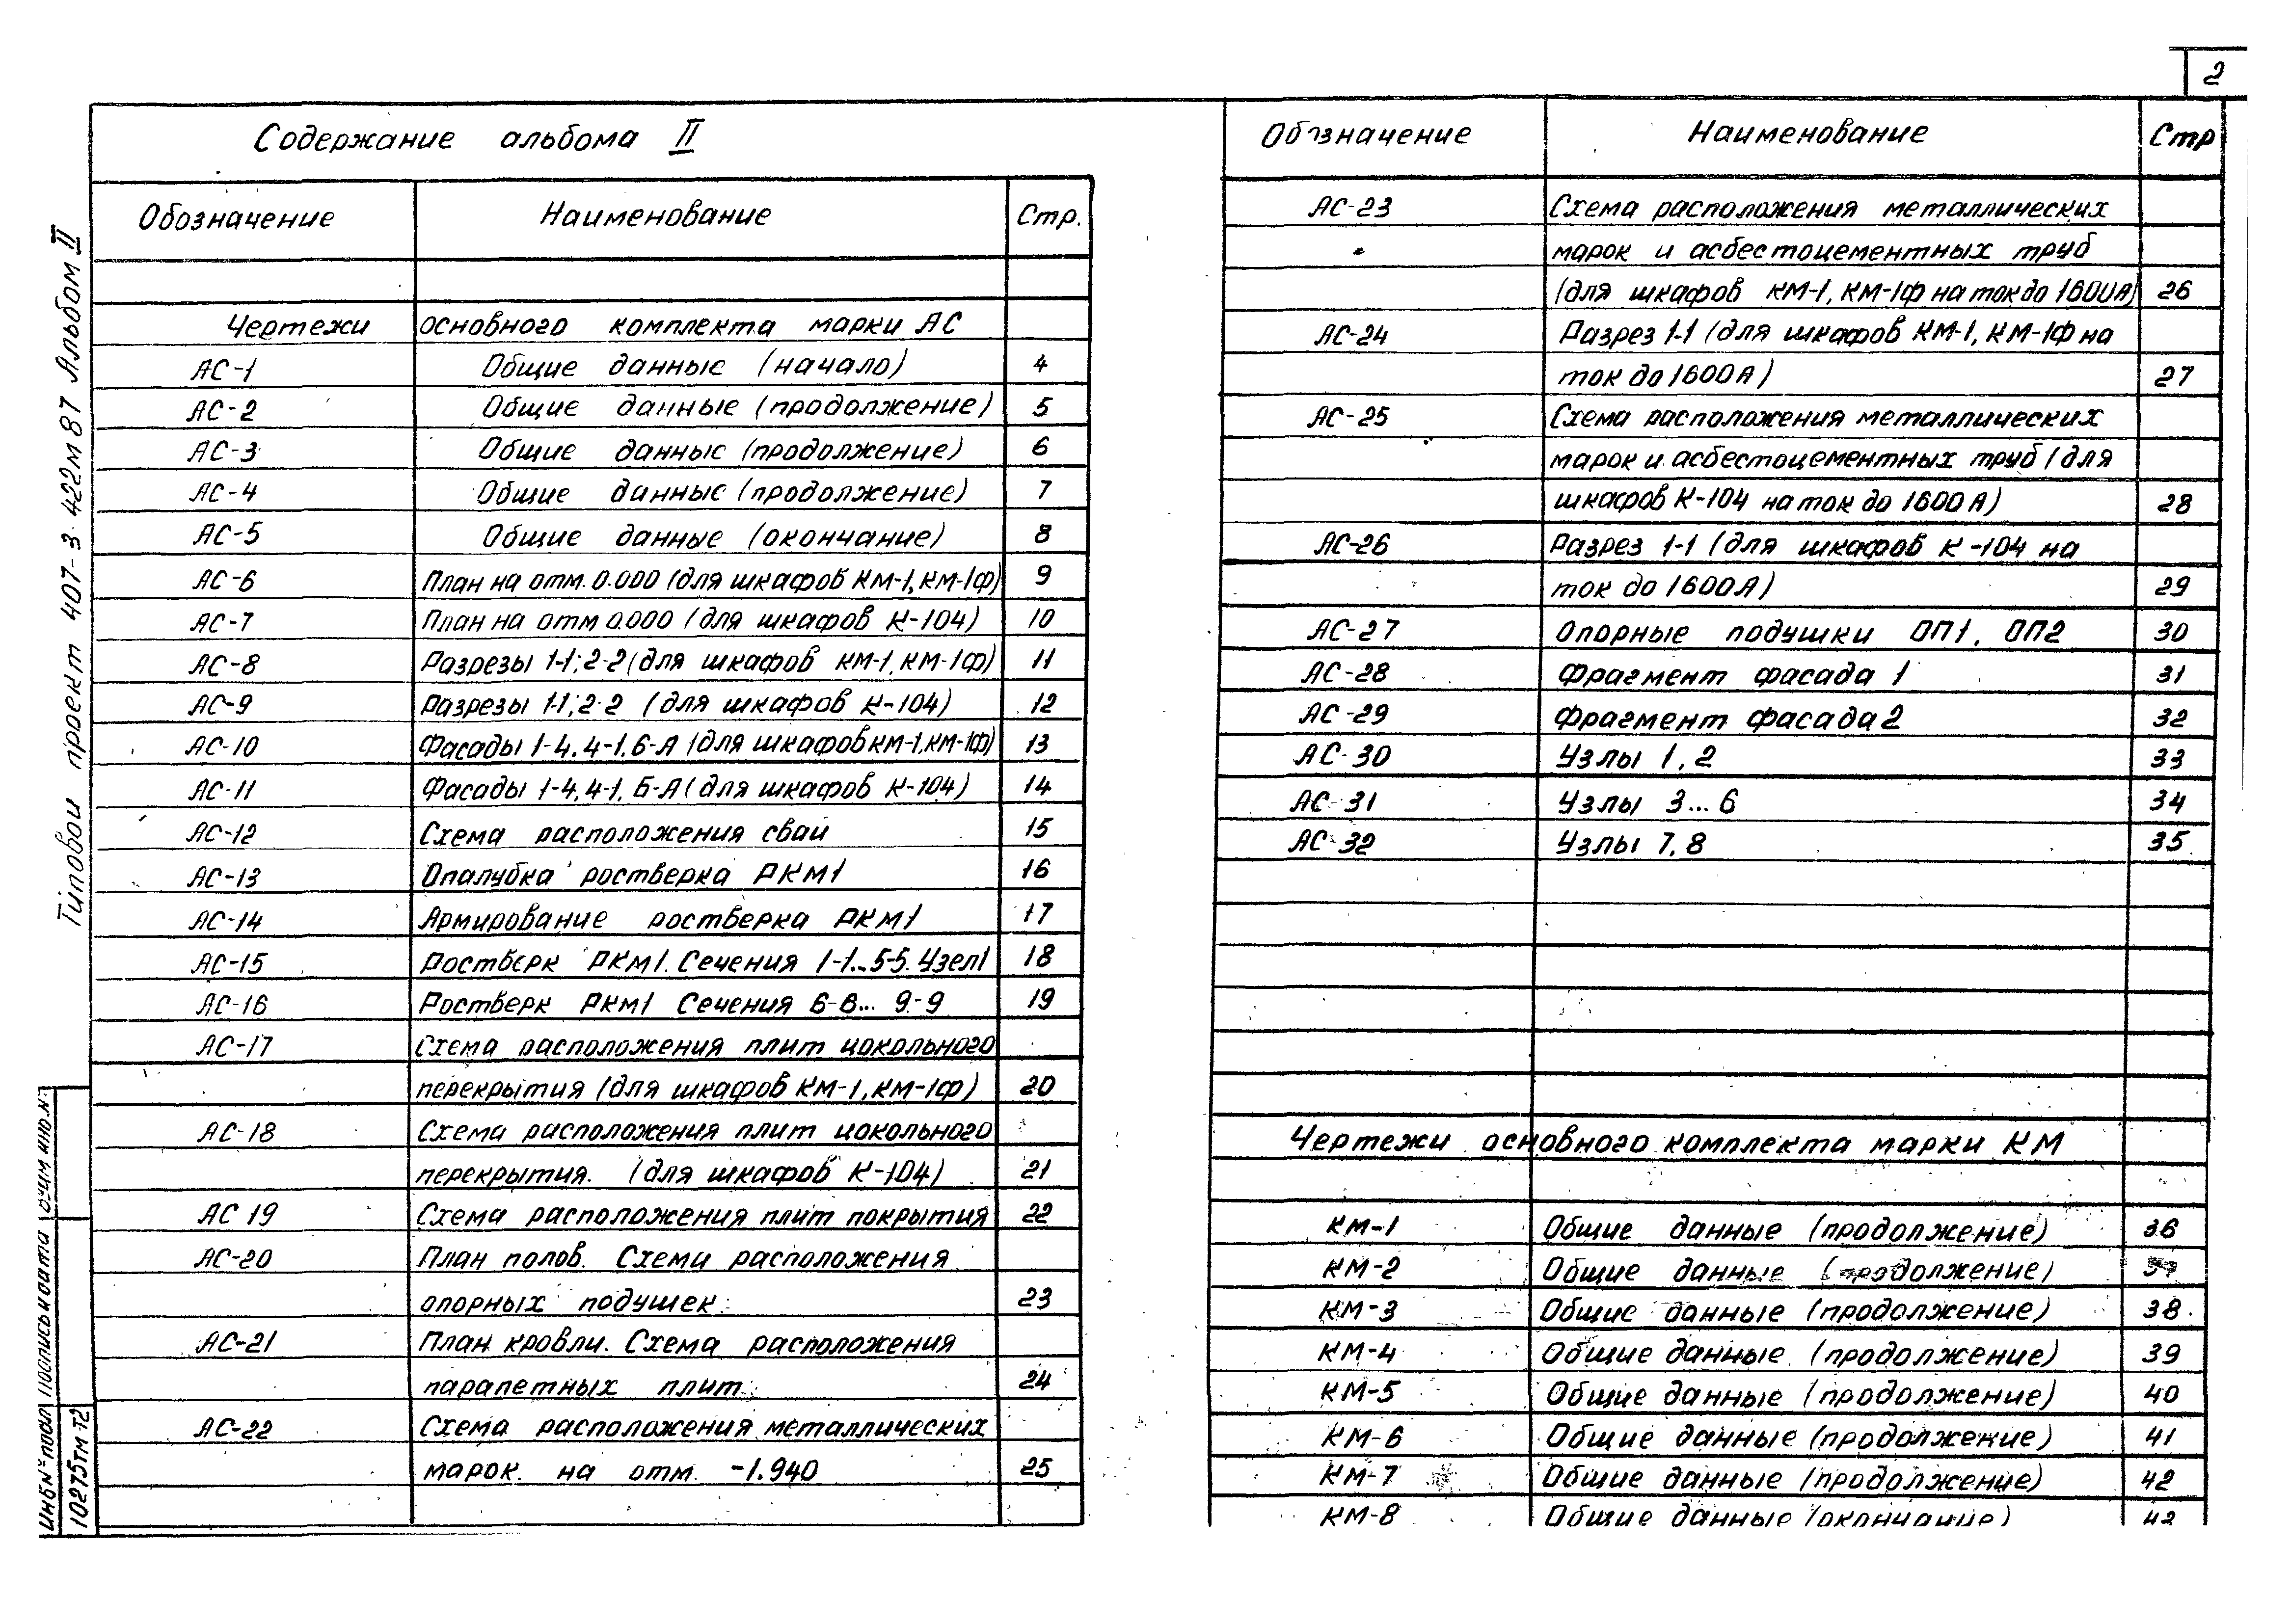 2
Содержание альбома II
Обозначение Наименование Стр.
Чертежи основного комплекта марки АС
АС-1 Общие данные (начало) 4
АС-2 Общие данные (продолжение) 5
АС-3 Общие данные (продолжение) 6
АС-4 Общие данные (продолжение) 7
АС-5 Общие данные (окончание) 8
АС-6 План на отм. 0.000 (для шкафов КМ-1, КМ-1ф) 9
АС-7 План на отм 0.000 (для шкафов К-104) 10
АС-8 Разрезы 1-1; 2-2 (для шкафов КМ-1, КМ-1ф) 11
АС-9 Разрезы 1-1; 2-2 (для шкафов К-104) 12
АС-10 Фасады 1-4, 4-1, Б-А (для шкафов КМ-1, КМ-1ф) 13
АС-11 Фасады 1-4, 4-1, Б-А (для шкафов К-104) 14
АС-12 Схема расположения сваи 15
АС-13 Опалубка ростверка РКМ1 16
АС-14 Армирование ростверка РКМ1 17
АС-15 Ростверк РКМ1. Сечения 1-1...5-5. Узел 1 18
АС-16 Ростверк РКМ1 Сечения 6-6... 9-9 19
АС-17 Схема расположения плит цокольного
перекрытия (для шкафов КМ-1, КМ-1ф) 20
АС-18 Схема расположения плит цокольного
перекрытия. (для шкафов К-104) 21
АС 19 Схема расположения плит покрытия 22
АС-20 План полов. Схеми расположения
опорных подушек. 23
АС-21 План кровли. Схема расположения
парапетных плит. 24
АС-22 Схема расположения металлических
марок. на отм. -1.940 25
Обозначение Наименование Стр
АС-23 Схема расположения металлических
марок и асбестоцементных труб
(для шкафов КМ-1, КМ-1ф на ток до 1600А) 26
АС-24 Разрез 1-1 (для шкафов КМ-1, КМ-1ф на
ток до 1600А) 27
АС-25 Схема расположения металлических
марок и асбестоцементных труб (для
шкафов К-104 на ток до 1600 А) 28
АС-26 Разрез 1-1 (для шкафов К-104 на
ток до 1600А) 29
АС-27 Опорные подушки ОП1, ОП2 30
АС-28 Фрагмент фасада 1 31
АС-29 Фрагмент фасада 2 32
АС-30 Узлы 1, 2 33
АС-31 Узлы 3...6 34
АС-32 Узлы 7, 8 35
Чертежи основного комплекта марки КМ
КМ-1 Общие данные (продолжение) 36
КМ-2 Общие данные (продолжение) 37
КМ-3 Общие данные (продолжение) 38
КМ-4 Общие данные (продолжение) 39
КМ-5 Общие данные (продолжение) 40
КМ-6 Общие данные (продолжение) 41
КМ-7 Общие данные (продолжение) 42
КМ-8 Общие данные (окончание)
Типовои проект 407-3-422м87 Альбом II
Инв № подл Подпись и дата
10275тм-т2